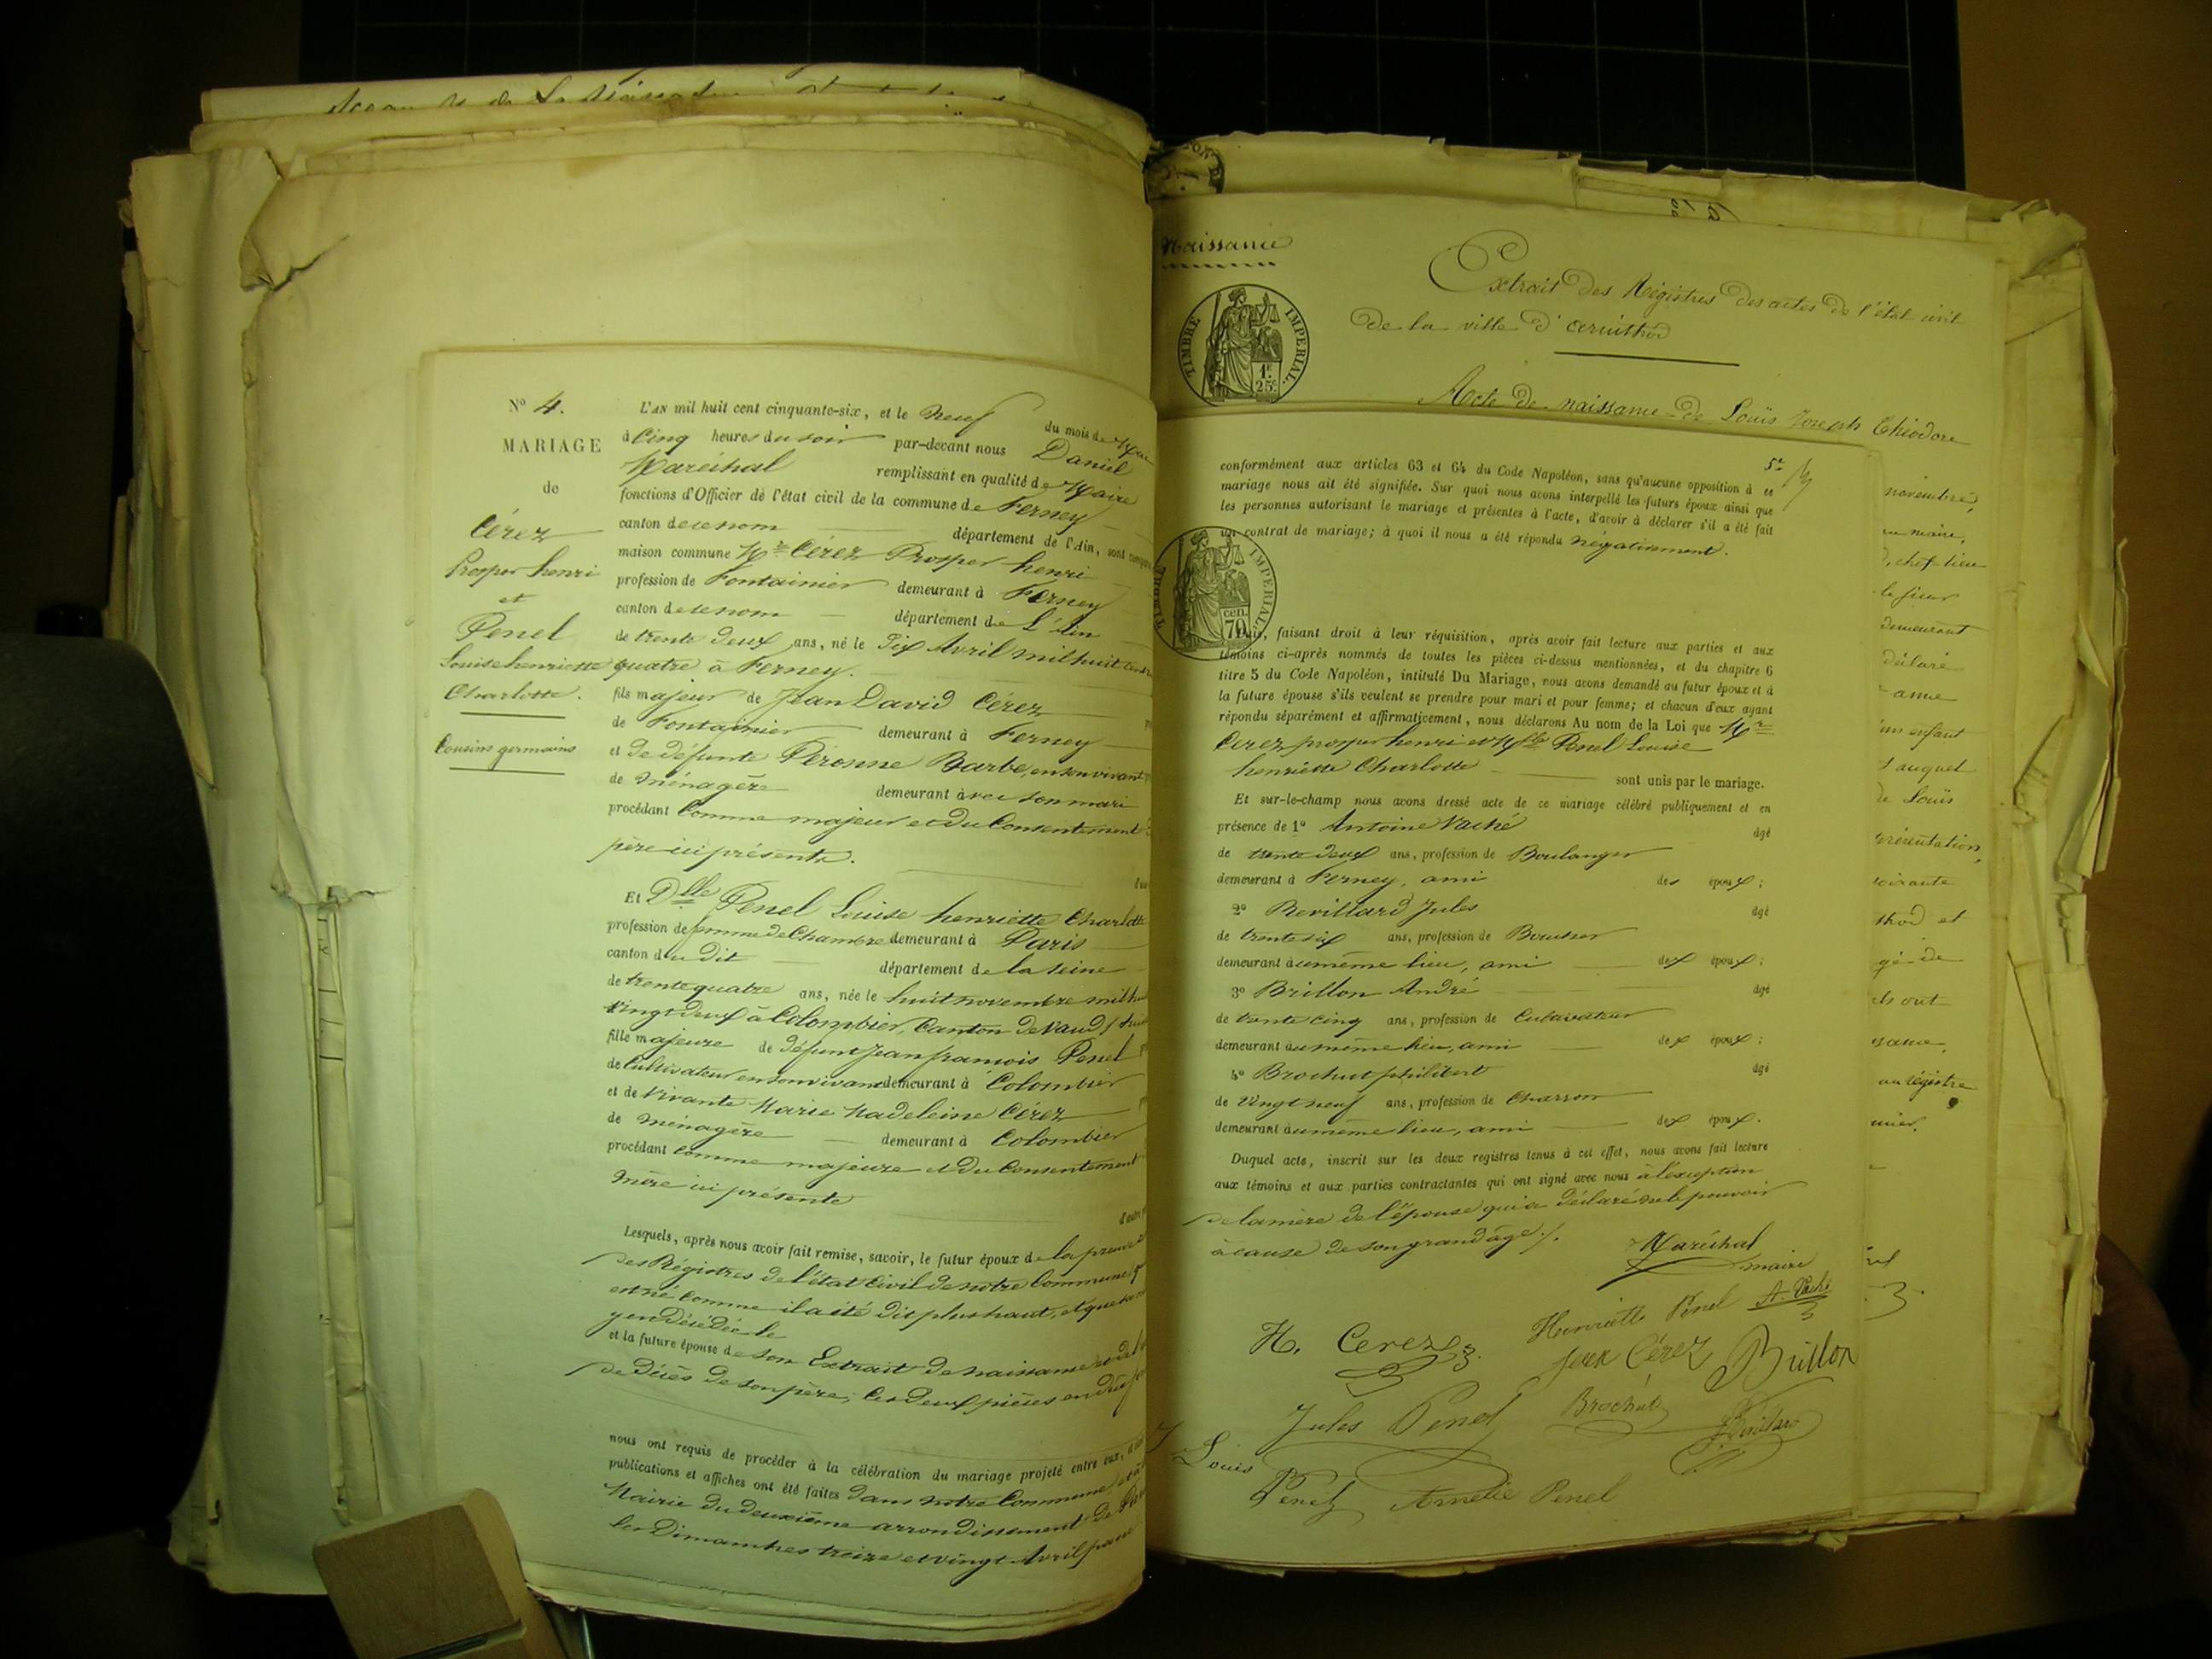 N° 4.
MARIAGE
de
Cérez
Prosper henri
et
Penel
Louise henriette
Charlotte.
Cousins germains
L'AN mil huit cent cinquante-six, et le neuf du mois de
à Cinq heures du soir par-devant nous Daniel
Maréchal remplissant en qualité de Maire
fonctions d'Officier de l'état civil de la commune de Ferney
canton de ce nom département de l'Ain, sont
maison commune Mr Cérez Prosper henri
profession de Fontainier demeurant à Ferney
canton de ce nom département de L'Ain
de trente deux ans, né le Dix Avril mil huit cent
quatre à Ferney.
fils majeur de Jean David Cérez
de Fontainier demeurant à Ferney
et de défunte Péronne Barbe, en son vivant
de ménagère demeurant avec son mari
procédant Comme majeur et du Consentement
père ici présente.
Et Dlle Penel Louise henriette Charlotte
profession de femme de Chambre demeurant à Paris
canton du dit département de la Seine
de trente quatre ans, née le huit novembre mil
vingt deux à Colombier, Canton de Vaud
fille majeure de défunt Jean françois Penel
de Cultivateur en son vivant demeurant à Colombier
et de vivante Marie Madeleine Cérez
de ménagère demeurant à Colombier
procédant Comme majeure et du Consentement
mère ici présente
Lesquels, après nous avoir fait remise, savoir, le futur époux de la preuve
des Régistres de l'état Civil de notre Commune
est né comme il a été dit plus haut, et que sa
y en décédée
et la future épouse de son Extrait de naissance et de
de Décès de son père; les deux pièces en due
nous ont requis de procéder à la célébration du mariage projeté entre eux,
publications et affiches ont été faites dans notre Commune et à
Mairie du deuxième arrondissement de
les Dimanches treize et vingt Avril passé
naissance
TIMBRE IMPERIAL.
1F.
25c.
Extrait des Régistres des actes de l'état civil
de la ville d'arinthod
Acte de naissance de Louïs Joseph Théodore
5e
conformément aux articles 63 et 64 du Code Napoléon, sans qu'aucune opposition à ce
mariage nous ait été signifiée. Sur quoi nous avons interpellé les futurs époux ainsi que
les personnes autorisant le mariage et présentes à l'acte, d'avoir à déclarer s'il a été fait
un contrat de mariage; à quoi il nous a été répondu négativement.
TIMBRE IMPERIAL.
cen.
70
Puis, faisant droit à leur réquisition, après avoir fait lecture aux parties et aux
témoins ci-après nommés de toutes les pièces ci-dessus mentionnées, et du chapitre 6
titre 5 du Code Napoléon, intitulé Du Mariage, nous avons demandé au futur époux et à
la future épouse s'ils veulent se prendre pour mari et pour femme; et chacun d'eux ayant
répondu séparément et affirmativement, nous déclarons Au nom de la Loi que Mr
Cerez prosper henri et Mlle Penel Louise
henriette Charlotte sont unis par le mariage.
Et sur-le-champ nous avons dressé acte de ce mariage célébré publiquement et en
présence de 1° Antoine Vaché âgé
de trente deux ans, profession de Boulanger
demeurant à Ferney, ami des époux;
2° Revillard Jules âgé
de trente six ans, profession de Boucher
demeurant au même lieu, ami des époux;
3° Brillon André âgé
de trente cinq ans, profession de Cultivateur
demeurant au même lieu, ami des époux;
4° Brochut philibert âgé
de Vingt neuf ans, profession de Charron
demeurant au même lieu, ami des époux.
Duquel acte, inscrit sur les deux registres tenus à cet effet, nous avons fait lecture
aux témoins et aux parties contractantes qui ont signé avec nous à l'exception
de la mère de l'épouse qui a déclaré ne le pouvoir
à cause de son grand âge /.
Maréchal
maire
Henriette Penel A. Vaché
H. Cerez
Jean Cérez Brillon
Jules Penel Brochut
Louis
Penel Amelie Penel
novembre,
maire,
chef-lieu
le sieur
demeurant
déclaré
un enfant
auquel
de Louïs
présentation,
thod et
gé de
ont
au régistre